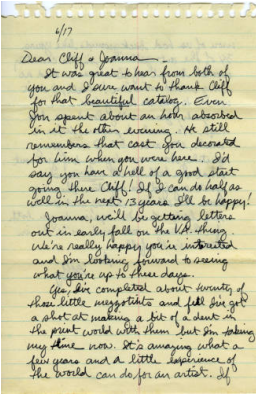 6/17
Dear Cliff & Joanna —
It was great to hear from both of
you and I sure want to thank Cliff
for that beautiful catalog. Even
Jon spent about an hour absorbed
in it the other evening. He still
remembers that cast you decorated
for him when you were here. I'd
say you have a hell of a good start
going there Cliff! If I can do half as
well in the next 13 years I'll be happy!
Joanna, we'll be getting letters
out in early fall on the VA thing.
We're really happy you're interested
and I'm looking forward to seeing
what you're up to these days.
Yes, I've completed about twenty of
those little mezzotints and feel I've got
a shot at making a bit of a dent in
the print world with them but I'm taking
my time now. It's amazing what a
few years and a little experience of
the world can do for an artist. If